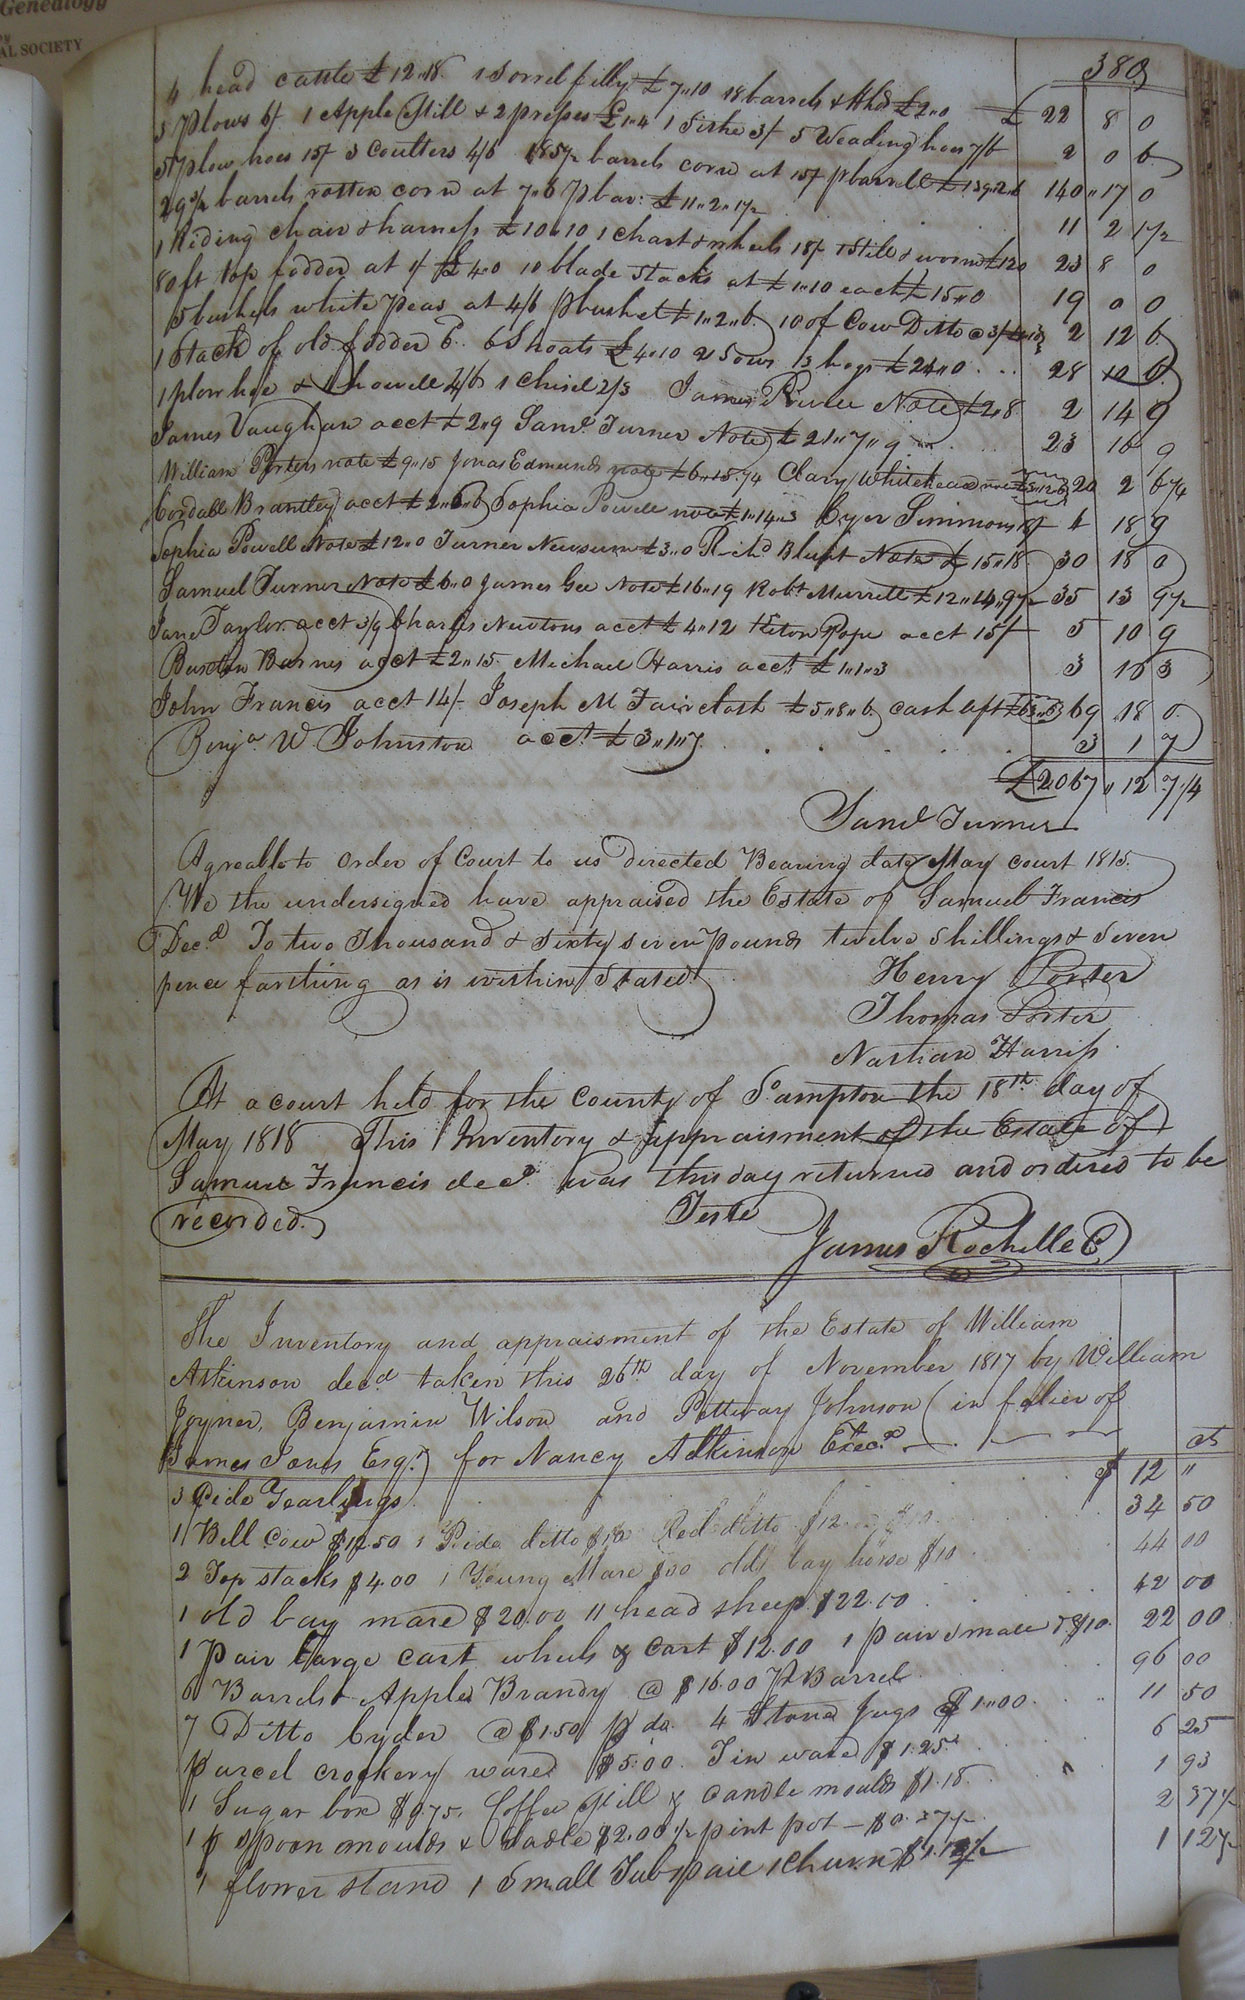 Genealogy
AL SOCIETY
389
4 head cattle £12"18 1 Sorrel filly £7"10 18 barrels & Hhds £2"0 £ 22 8 0
3 Plows 6/ 1 Apple Mill & 2 presses £1"4 1 Sithe 3/ 5 Weading hoes 7/6 2 0 6
5 Plow hoes 15/ 3 Coulters 4/6 185½ barrels corn at 15/ p barrell £139"2"6 140"17 0
29⅔ barrels rotten corn at 7"6 p bar: £11"2"1½ 11 2 1½
1 Riding chair & harness £10"10 1 Chart & wheels 18/ 1 Still & worm £12"0 23 8 0
80 ft top fodder at 1/ £4"0 10 blade Stacks at £1"10 each £15"0 19 0 0
5 bushels white peas at 4/6 p bushel £1"2"6 10 of Cow Ditto @ 3/ £1"10 2 12 6
1 Stack of old fodder 6d. 6 Shoats £4"10 2 Sows 13 hogs £24"0 28 10 6
1 plow hoe & Showell 4/6 1 Chisel 2/3 James Note £2"8 2 14 9
James Vaughan acct £2"9 Saml. Turner Note £21"7"9 23 16 9
William Porters note £9"15 Jonas Edmunds note £6"15"7¼ Clary Whitehead note £3"12"6 20 2 6¼
Cordall Brantley acct £2"6"6 Sophia Powell note £1"14"3 Cyer Simmons 18/ 4 18 9
Sophia Powell Note £12"0 Turner Newsum £3"0 Richd Blunt Note £15"18 30 18 0
Samuel Turner Note £6"0 James Gee Note £16"19 Robt Murrell £12"14"9½ 35 13 9½
Jane Taylor acct 3/9 Charles Newtons acct £4"12 Pope acct 15/ 5 10 9
Burton Barnes acct £2"15 Michael Harris acct. £1"1"3 3 16 3
John Francis acct 14/- Joseph M Faircloth £5"8"6 cash 69 18 0
Benja. W Johnston acct. £3"1"7 3 1 7
£2067"12 7¼
Saml Turner
Agreable to order of Court to us directed Bearing date May court 1815
We the undersigned have appraised the Estate of Samuel Francis
Decd To two Thousand & Sixty Seven pounds twelve Shillings & Seven
pence farthing as is within Stated
Henry Porter
Thomas Porter
Nathan Harriss
At a court held for the county of So.ampton the 18th day of
May 1818 This Inventory & appraisment of the Estate of
Samuel Francis decd. was this day returned and ordered to be
recorded. Teste
James Rochelle C
The Inventory and appraisment of the Estate of William
Atkinson decd taken this 26th day of November 1817 by William
Joyner, Benjamin Wilson and Pettway Johnson (in folier of
James Jones Esqr.) for Nancy Atkinson Execx
cts
3 Pide Yearlings $ 12 "
1 Bell Cow $12.50 1 Pide ditto $10 Red ditto $12 34 50
2 Top stacks $4.00 1 Young Mare $30 old bay horse $10 44 00
1 old bay mare $20.00 11 head sheep $22.00 42 00
1 pair large cart wheels & cart $12.00 1 pair small do $10. 22 00
6 Barrels Apple Brandy @ $16.00 p Barrel 96 00
7 Ditto Cyder @ $1.50 p do. 4 Stone Jugs $1.00 11 50
parcel crockery ware $5.00 Tin ware $1.25 6 25
1 Sugar box $0.75. Coffee Mill & candle moulds $1.18 1 93
1 spoon moulds & Ladle $2.00 ½ pint pot - $0.37½ 2 37½
1 flower stand 1 Small Tub 1 pail 1 Churn $1.12½ 1 12½